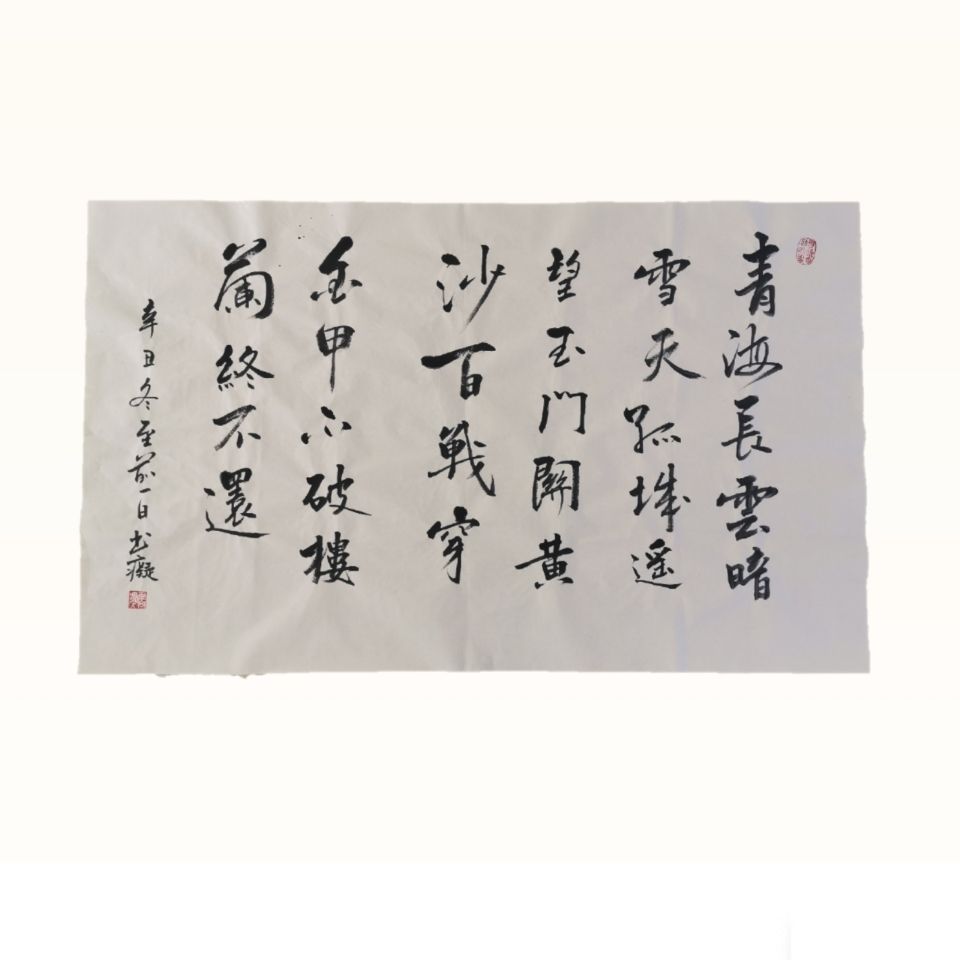 青海長雲暗
雪天孤城遥
望玉門關黄
沙百戰穿
金甲不破樓
蘭終不還
辛丑冬至前一日书癡